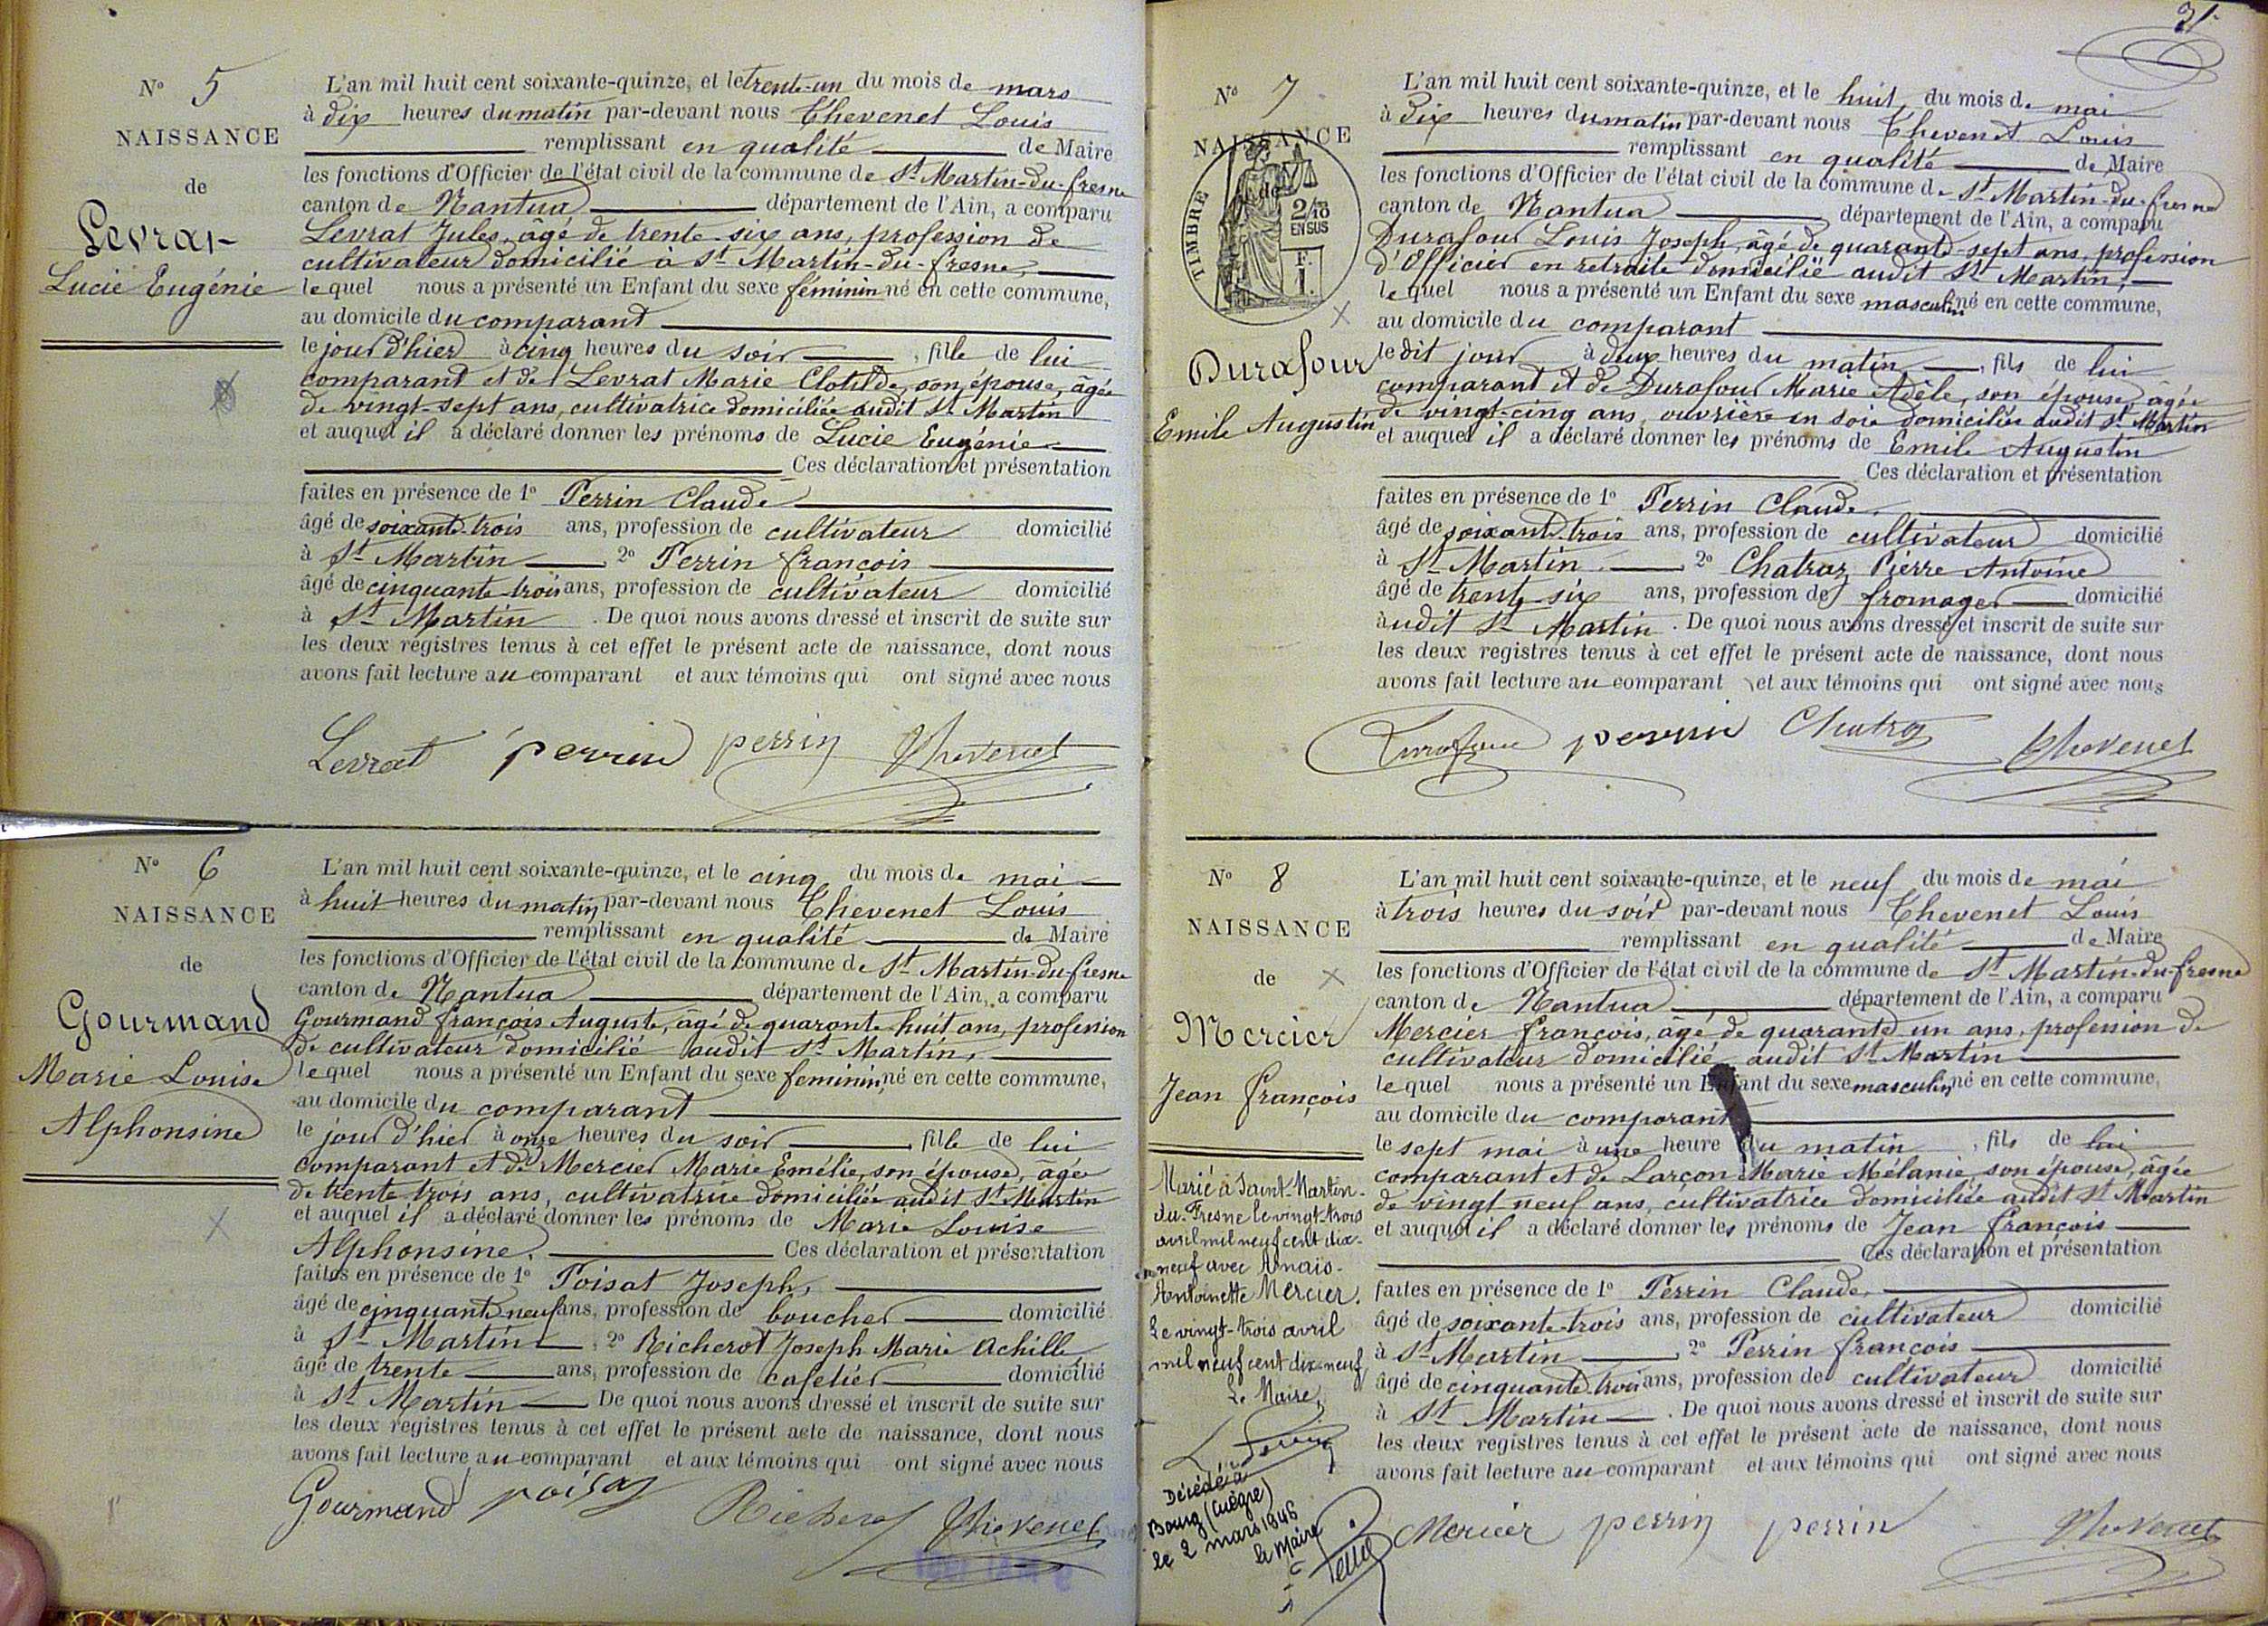 N° 5
NAISSANCE
de
Levrat
Lucie Eugénie
L'an mil huit cent soixante-quinze, et le trente-un du mois de mars
à dix heures du matin par-devant nous Thevenet Louis
remplissant en qualité de Maire
les fonctions d'Officier de l'état civil de la commune de St Martin-du-fresne
canton de Nantua département de l'Ain, a comparu
Levrat Jules, âgé de trente-six ans, profession de
cultivateur domicilié à St Martin-du-fresne,
lequel nous a présenté un Enfant du sexe féminin né en cette commune,
au domicile du comparant
le jour d'hier à cinq heures du soir, fille de lui
comparant et de Levrat Marie Clotilde, son épouse, âgée
de vingt-sept ans, cultivatrice domiciliée audit St Martin
et auquel il a déclaré donner les prénoms de Lucie Eugénie
Ces déclaration et présentation
faites en présence de 1° Perrin Claude
âgé de soixante-trois ans, profession de cultivateur domicilié
à St Martin 2° Perrin françois
âgé de cinquante-trois ans, profession de cultivateur domicilié
à St Martin. De quoi nous avons dressé et inscrit de suite sur
les deux registres tenus à cet effet le présent acte de naissance, dont nous
avons fait lecture au comparant et aux témoins qui ont signé avec nous
Levrat perrin perrin Thevenet
N° 6
NAISSANCE
de
Gourmand
Marie Louise
Alphonsine
L'an mil huit cent soixante-quinze, et le cinq du mois de mai
à huit heures du matin par-devant nous Thevenet Louis
remplissant en qualité de Maire
les fonctions d'Officier de l'état civil de la commune de St Martin-du-fresne
canton de Nantua département de l'Ain, a comparu
Gourmand françois Auguste, âgé de quarante-huit ans, profession
de cultivateur domicilié audit St Martin,
lequel nous a présenté un Enfant du sexe feminin, né en cette commune,
au domicile du comparant
le jour d'hier à onze heures du soir fille de lui
comparant et de Mercier Marie Emélie, son épouse, agée
de trente trois ans, cultivatrice domiciliée audit St Martin
et auquel il a déclaré donner les prénoms de Marie Louise
Alphonsine. Ces déclaration et présentation
faites en présence de 1° Poisat Joseph,
âgé de cinquante neuf ans, profession de boucher domicilié
à St Martin, 2° Richerot Joseph Marie Achille
âgé de trente ans, profession de cafetier domicilié
à St Martin De quoi nous avons dressé et inscrit de suite sur
les deux registres tenus à cet effet le présent acte de naissance, dont nous
avons fait lecture au comparant et aux témoins qui ont signé avec nous
Gourmand poisat Richerot Thevenet
31
N° 7
NAISSANCE
de
TIMBRE
2/10
EN SUS
F.
1.
Durafour
Emile Augustin
L'an mil huit cent soixante-quinze, et le huit du mois de mai
à dix heures du matin par-devant nous Thevenet Louis
remplissant en qualité de Maire
les fonctions d'Officier de l'état civil de la commune de St Martin-du-fresne
canton de Nantua département de l'Ain, a comparu
Durafour Louis Joseph, âgé de quarante-sept ans, profession
d'Officier en retraite domicilié audit St Martin,
lequel nous a présenté un Enfant du sexe masculin né en cette commune,
au domicile du comparant
ledit jour à deux heures du matin, fils de lui
comparant et de Durafour Marie Adèle, son épouse, âgée
de vingt-cinq ans, ouvrière en soie domiciliée audit St Martin
et auquel il a déclaré donner les prénoms de Emile Augustin
Ces déclaration et présentation
faites en présence de 1° Perrin Claude,
âgé de soixante-trois ans, profession de cultivateur domicilié
à St Martin 2° Chatraz Pierre Antoine
âgé de trente-six ans, profession de fromager domicilié
àudit St Martin. De quoi nous avons dressé et inscrit de suite sur
les deux registres tenus à cet effet le présent acte de naissance, dont nous
avons fait lecture au comparant et aux témoins qui ont signé avec nous
Durafour perrin Chatraz Thevenet
N° 8
NAISSANCE
de
Mercier
Jean françois
L'an mil huit cent soixante-quinze, et le neuf du mois de mai
à trois heures du soir par-devant nous Thevenet Louis
remplissant en qualité de Maire
les fonctions d'Officier de l'état civil de la commune de St Martin-du-fresne
canton de Nantua département de l'Ain, a comparu
Mercier françois, âgé de quarante un ans, profession de
cultivateur domicilié audit St Martin
lequel nous a présenté un Enfant du sexe masculin, né en cette commune,
au domicile du comparant
le sept mai à une heure du matin, fils de lui
comparant et de Larçon Marie Mélanie, son épouse, âgée
de vingt neuf ans, cultivatrice domiciliée audit St Martin
et auquel il a déclaré donner les prénoms de Jean françois
Ces déclaration et présentation
faites en présence de 1° Perrin Claude,
âgé de soixante-trois ans, profession de cultivateur domicilié
à St Martin, 2° Perrin françois
âgé de cinquante-trois ans, profession de cultivateur domicilié
à St Martin. De quoi nous avons dressé et inscrit de suite sur
les deux registres tenus à cet effet le présent acte de naissance, dont nous
avons fait lecture au comparant et aux témoins qui ont signé avec nous
Mercier perrin perrin Thevenet
Marié à Saint-Martin-
du-Fresne le vingt-trois
avril mil neuf cent dix-
neuf avec Anaïs-
Antoinette Mercier.
Le vingt-trois avril
mil neuf cent dix-neuf
Le Maire,
Décédé à
Bourg (Cuègre)
le 2 mars 1946
Le Maire